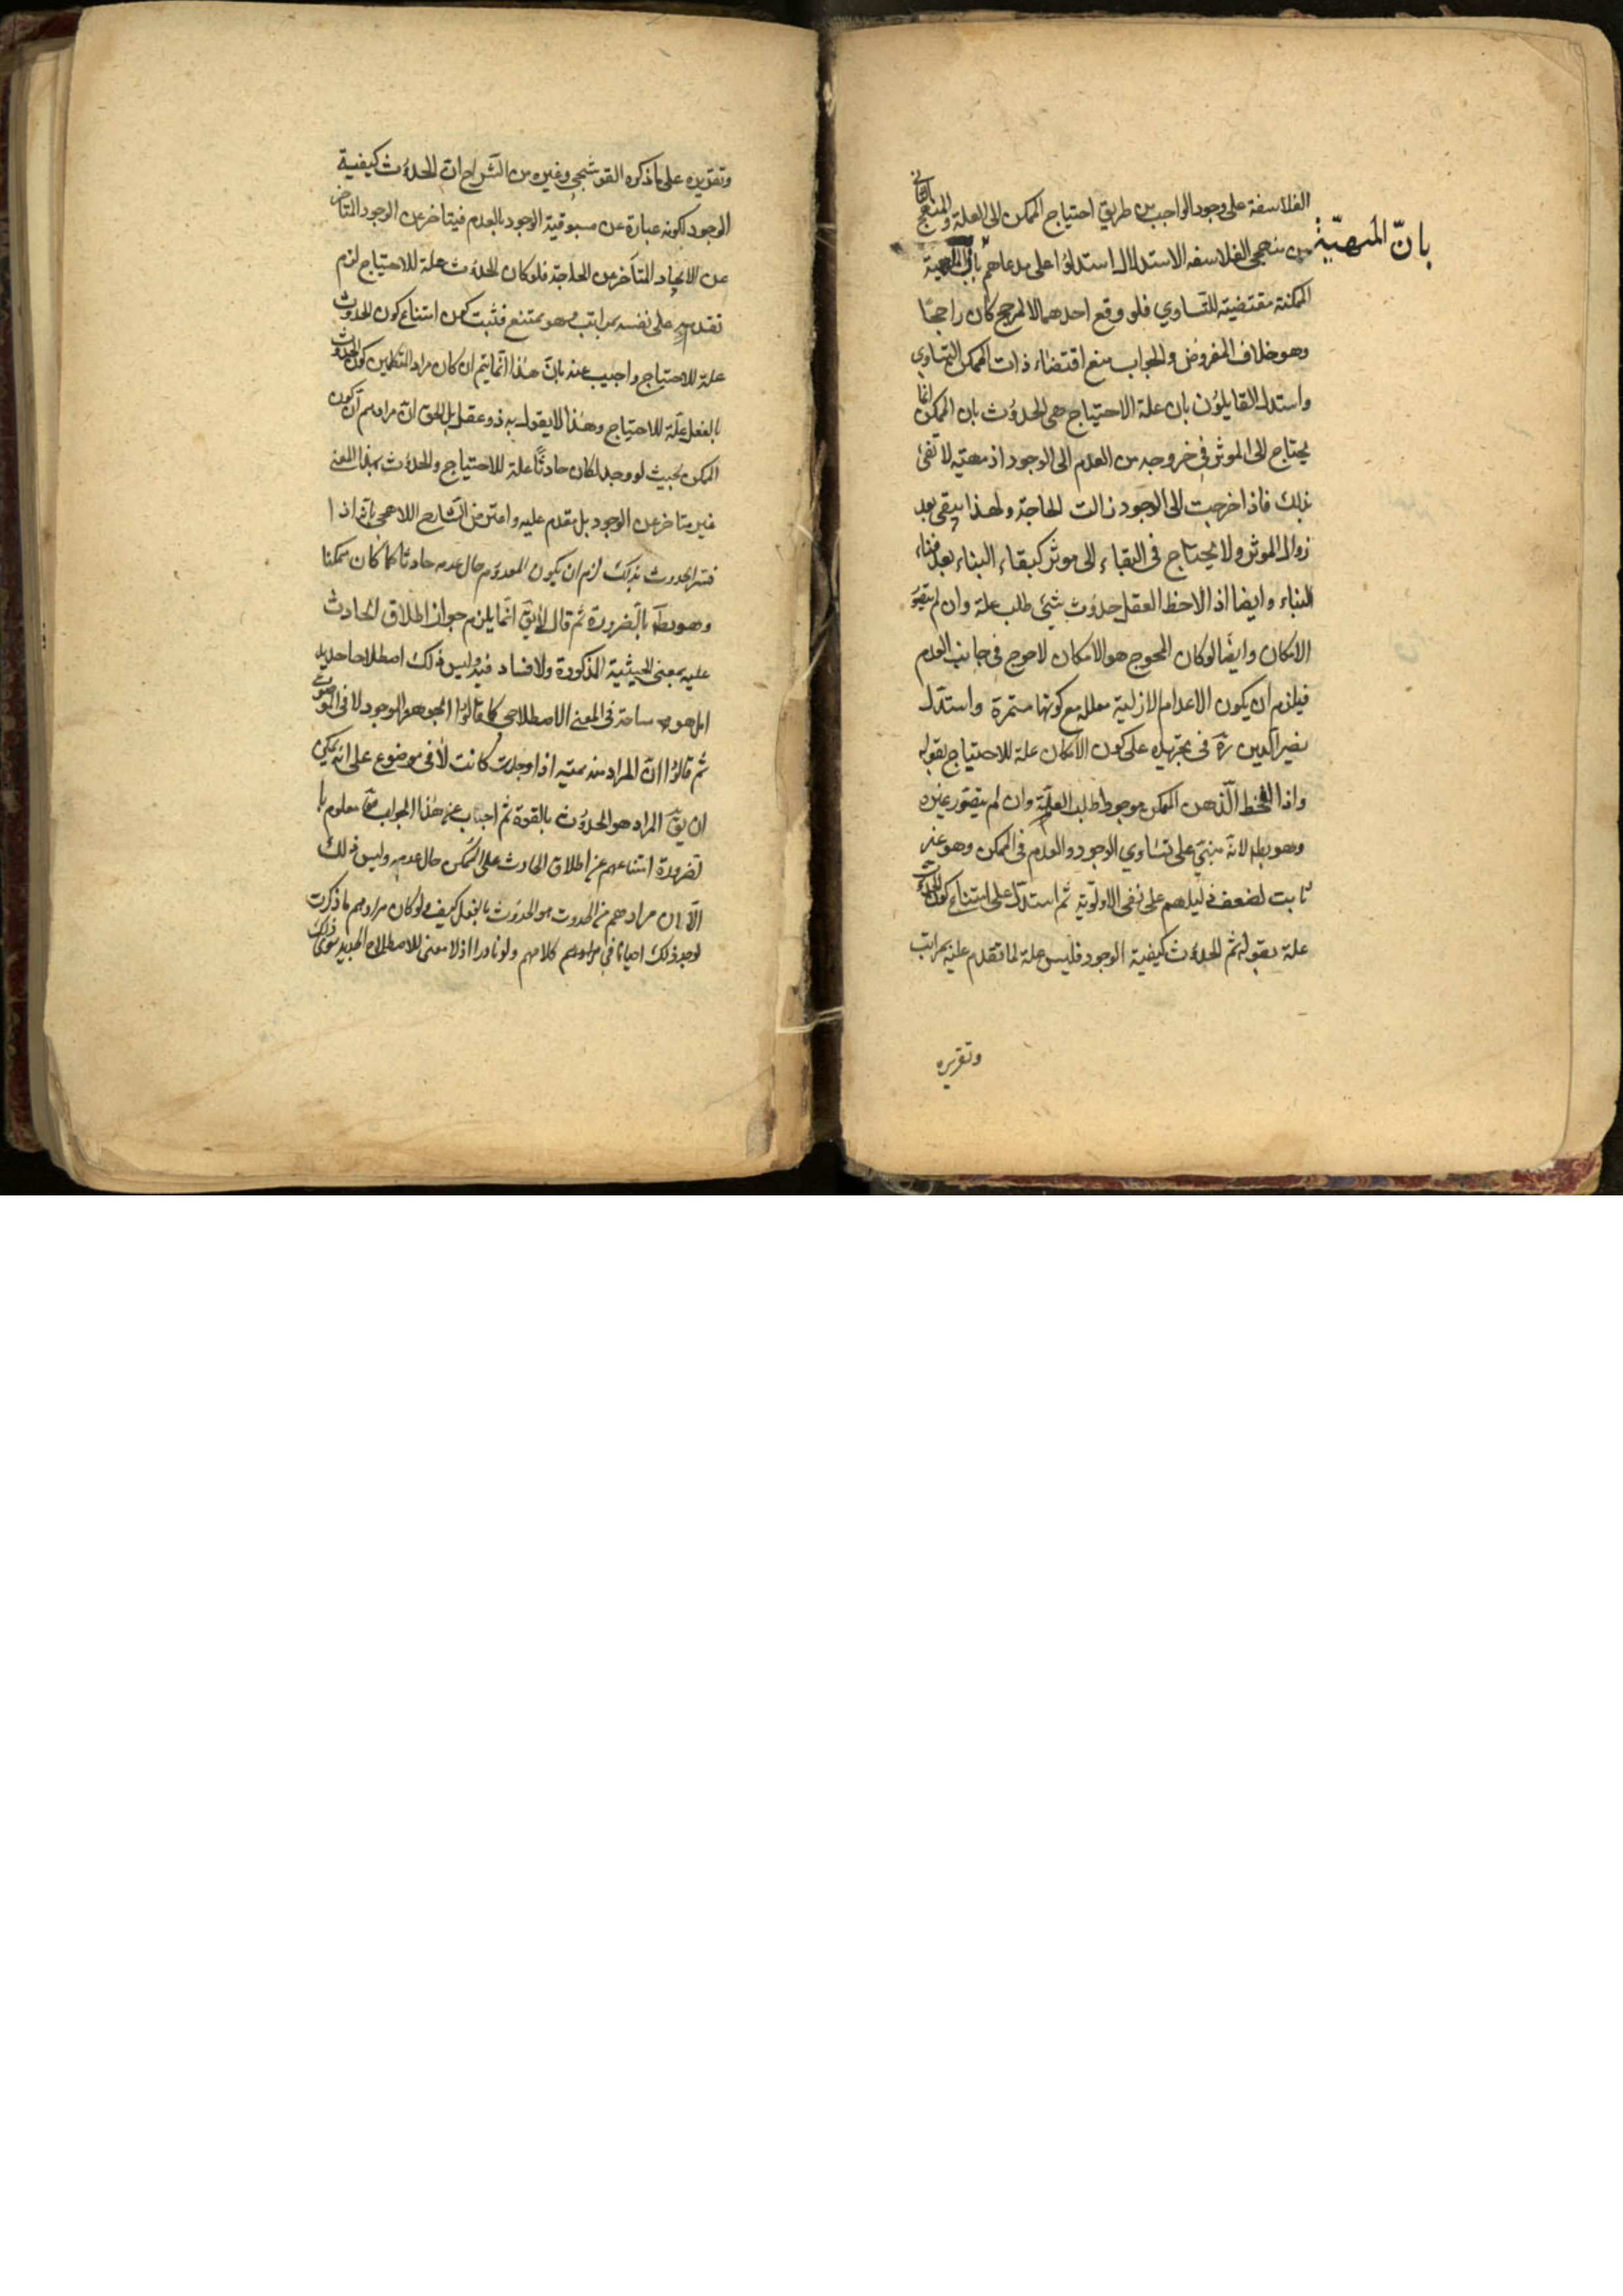 الفلاسفة على وجود الواجب من طريق احتياج الممكن الى العلة والمنهج الثاني
من منهجى الفلاسفه الاستدلال استدلوا على مدعاهم بان المهية
بانّ المهيّة
الممكنة مقتضية للتساوي فلو وقع احدهما لا لمرجح كان راجحا
وهو خلاف المفروض والجواب منع اقتضاء ذات الممكن التساوي
واستدل القايلون بان علة الاحتياج هى الحدوث بان الممكن انما
يحتاج الى الموثر فى خروجه من العدم الى الوجود اذ مهيته لا تفى
بذلك فاذا خرجت الى الوجود زالت الحاجة ولهذا يبقى بعد
زوال الموثر ولا يحتاج فى البقاء الى موثر كبقاء البناء بعد فناء
البناء وايضا اذا لاحظ العقل حدوث شئ طلب علة وان لم يتصور
الامكان وايضا لو كان المحوج هو الامكان لاحوج فى جانب العدم
فيلزم ان يكون الاعدام الازلية معلله مع كونها مستمرة واستدل
نصير الدين ره فى تجريده على كون الامكان علة للاحتياج بقوله
واذا لحظ الذهن الممكن موجودا طلب العلة وان لم يتصور غيره
وهو بط لانه مبنى على تساوي الوجود والعدم فى الممكن وهو غير
ثابت لضعف دليلهم على نفى الاولوية ثم استدل على امتناع كون الحدوث
علة بقوله ثم الحدوث كيفية الوجود فليس علة لما تقدم عليه بمراتب
وتقريره
وتقريره على ما ذكره القوشجى وغيره من الشراح ان الحدوث كيفية
الوجود لكونه عبارة عن مسبوقية الوجود بالعدم فيتاخر عن الوجود المتاخر
عن الايجاد المتاخر عن الحاجة فلو كان الحدوث علة للاحتياج لزم
تقدمه على نفسه بمراتب وهو ممتنع فثبت من امتناع كون الحدوث
علة للاحتياج واجيب عنه بان هذا انما يتم ان كان مراد المتكلمين كون الحدوث
بالفعل علة للاحتياج وهذا لا يقول به ذو عقل بل الحق ان مرادهم ان كون
الممكن بحيث لو وجد لكان حادثا علة للاحتياج والحدوث بهذا المعنى
غير متاخر عن الوجود بل مقدم عليه واعترض الشارح اللاهجى بانه اذا
فسر الحدوث بذلك لزم ان يكون المعدوم حال عدمه حادثا كما كان ممكنا
وهو بط بالضرورة ثم قال لا يق انما يلزم جواز اطلاق الحادث
عليه بمعنى الحيثية المذكورة ولا فساد فيه وليس ذلك اصطلاحا جديد
بل هو مسامحة فى المعنى الاصطلاحى كما قالوا الجوهر هو الموجود لا فى الموضوع
ثم قالوا ان المراد منه مهية اذا وجدت كانت لا فى موضوع على انه يمكن
ان يق المراد هو الحدوث بالقوة ثم اجاب عن هذا الجواب معلوم با
لضرورة امتناعهم عن اطلاق الحادث على الممكن حال عدمه وليس ذلك
الا لان مرادهم من الحدوث هو الحدوث بالفعل كيف ولو كان مرادهم ما ذكرت
لوجد ذلك احيانا فى كلامهم ولو نادرا اذ لا معنى للاصطلاح الجديد سوى ذلك